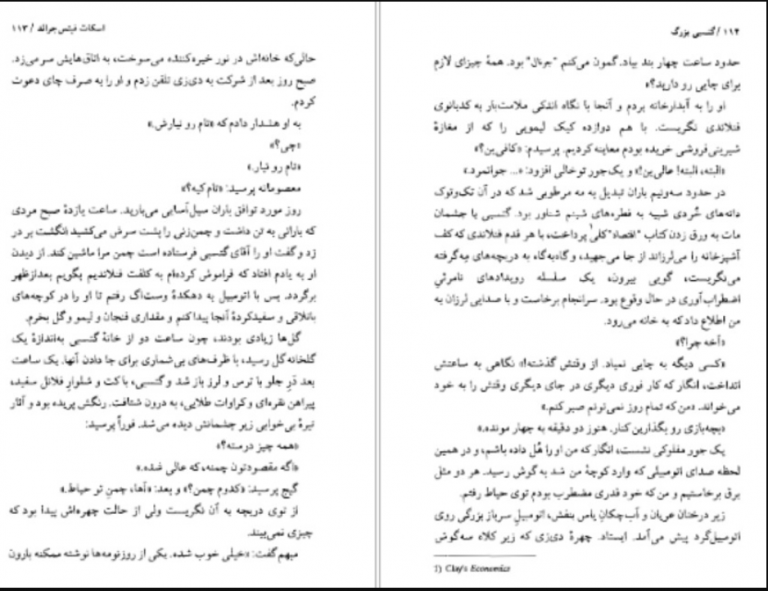 اسکات فیتس جرالد / ۱۱۳
حالی‌که خانه‌اش در نور خیره‌کننده می‌سوخت، به اتاق‌هایش سر می‌زد.
صبح روز بعد از شرکت به دی‌زی تلفن زدم و او را به صرف چای دعوت
کردم.
به او هشدار دادم که «تام رو نیارش.»
«چی؟»
«تام رو نیار.»
معصومانه پرسید: «تام کیه؟»
روز مورد توافق باران سیل‌آسایی می‌بارید. ساعت یازدهٔ صبح مردی
که بارانی به تن داشت و چمن‌زنی را پشت سرش می‌کشید انگشت بر در
زد و گفت او را آقای گتسبی فرستاده است چمن مرا ماشین کند. از دیدن
او به یادم افتاد که فراموش کرده‌ام به کلفت فنلاندیم بگویم بعدازظهر
برگردد. پس با اتومبیل به دهکدهٔ وست‌اگ رفتم تا او را در کوچه‌های
باتلاقی و سفیدکردهٔ آنجا پیدا کنم و مقداری فنجان و لیمو وگل بخرم.
گل‌ها زیادی بودند، چون ساعت دو از خانهٔ گتسبی به‌اندازهٔ یک
گلخانه گل رسید، با ظرف‌های بی‌شماری برای جا دادن آنها. یک ساعت
بعد دَرِ جلو با ترس و لرز باز شد و گتسبی، با کت و شلوارِ فلانل سفید،
پیراهن نقره‌ای و کراوات طلایی، به درون شتافت. رنگش پریده بود و آثار
تیرهٔ بی‌خوابی زیر چشمانش دیده می‌شد. فوراً پرسید:
«همه چیز درسته؟»
«اگه مقصودتون چمنه، که عالی شده.»
گیج پرسید: «کدوم چمن؟» و بعد: «آها، چمنِ تو حیاط.»
از توی دریچه به آن نگریست ولی از حالت چهره‌اش پیدا بود که
چیزی نمی‌بیند.
مبهم گفت: «خیلی خوب شده. یکی از روزنومه‌ها نوشته ممکنه بارون
۱۱۴ / گتسبی بزرگ
حدود ساعت چهار بند بیاد. گمون می‌کنم "جرنال" بود. همهٔ چیزای لازم
برای چایی رو دارید؟»
او را به آبدارخانه بردم و آنجا با نگاه اندکی ملامت‌بار به کدبانوی
فنلاندی نگریست. با هم دوازده کیک لیمویی را که از مغازهٔ
شیرینی‌فروشی خریده بودم معاینه کردیم. پرسیدم: «کافی‌ین؟»
«البته، البته! عالی‌ین!» و یک‌جور توخالی افزود: «... جوانمرد.»
در حدود سه‌ونیم باران تبدیل به مه مرطوبی شد که در آن تک‌وتوک
دانه‌های خُردی شبیه به قطره‌های شبنم شناور بود. گتسبی با چشمان
مات به ورق زدن کتاب "اقتصاد" کلی۱ پرداخت، با هر قدم فنلاندی که کف
آشپزخانه را می‌لرزاند از جا می‌جهید، و گاه‌به‌گاه به دریچه‌های مِه‌گرفته
می‌نگریست، گویی بیرون، یک سلسله رویدادهای نامرئیِ
اضطراب‌آوری در حال وقوع بود. سرانجام برخاست و با صدایی لرزان به
من اطلاع داد که به خانه می‌رود.
«آخه چرا؟»
«کسی دیگه به چایی نمیاد. از وقتش گذشته!» نگاهی به ساعتش
انداخت، انگار که کار فوری دیگری در جای دیگری وقتش را به خود
می‌خواند. «من که تمام روز نمی‌تونم صبر کنم.»
«بچه‌بازی رو بگذارین کنار. هنوز دو دقیقه به چهار مونده.»
یک جور مفلوکی نشست، انگار که من او را هُل داده باشم، و در همین
لحظه صدای اتومبیلی که وارد کوچهٔ من شد به گوش رسید. هر دو مثل
برق برخاستیم و من که خود قدری مضطرب بودم توی حیاط رفتم.
زیر درختان عریان و آب‌چکانِ یاس بنفش، اتومبیلِ سرباز بزرگی روی
اتومبیل‌گرد پیش می‌آمد. ایستاد. چهرهٔ دی‌زی که زیر کلاه سه‌گوش
1) Clay's Economics